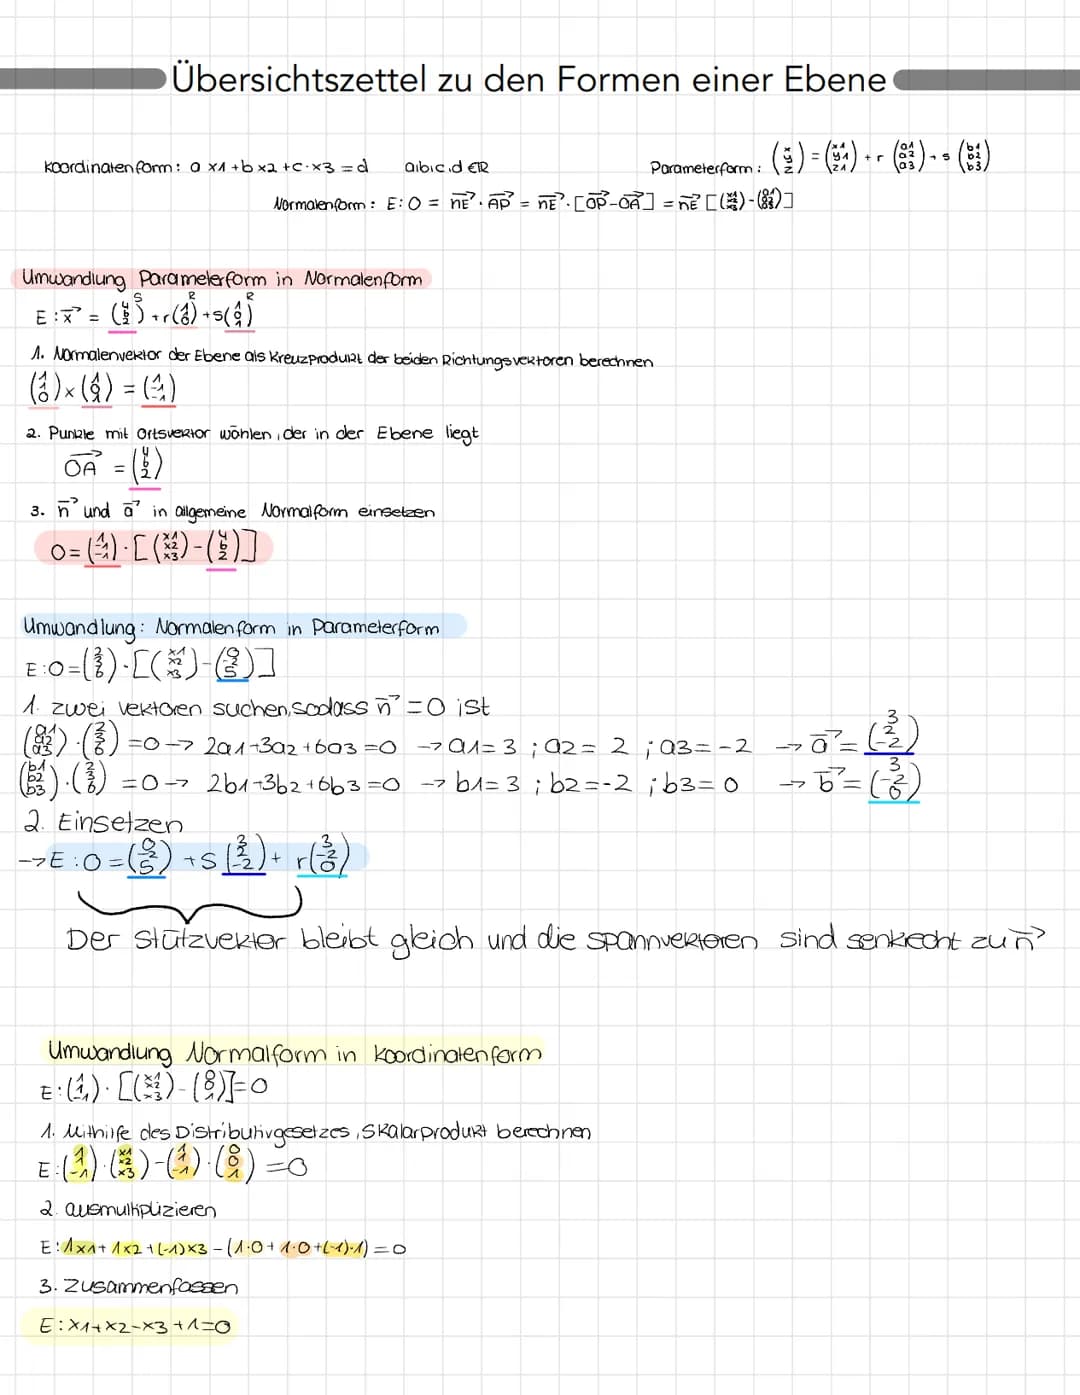 Übersichtszettel zu den Formen einer Ebene
Koordinatenform: a x1 + b x2 + c·x3 = d a,b,c,d ∈ ℝ Parameterform: (x y z) = (x1 y1 z1) + r (a1 a2 a3) + s (b1 b2 b3)
Normalenform: E: 0 = nE→ · AP→ = nE→ · [OP→ - OA→] = nE→ [(x1 x2 x3) - (a1 a2 a3)]
Umwandlung Parameterform in Normalenform
E: x→ = (4 6 2) + r(1 1 0) + s(1 0 1)
S R R
1. Normalenvektor der Ebene als Kreuzprodukt der beiden Richtungsvektoren berechnen
(1 1 0) × (1 0 1) = (1 -1 -1)
2. Punkte mit Ortsvektor wählen, der in der Ebene liegt
OA→ = (4 6 2)
3. n→ und a→ in allgemeine Normalform einsetzen
0 = (1 -1 -1) · [(x1 x2 x3) - (4 6 2)]
Umwandlung: Normalenform in Parameterform
E: 0 = (2 3 6) · [(x1 x2 x3) - (0 -2 5)]
1. zwei vektoren suchen, sodass n→ = 0 ist
(a1 a2 a3) · (2 3 6) = 0 → 2a1+3a2+6a3 = 0 → a1 = 3 ; a2 = 2 ; a3 = -2 → a→ = (3 2 -2)
(b1 b2 b3) · (2 3 6) = 0 → 2b1+3b2+6b3 = 0 → b1 = 3 ; b2 = -2 ; b3 = 0 → b→ = (3 -2 0)
2. Einsetzen
→ E: 0 = (0 -2 5) + s (3 2 -2) + r (3 -2 0)
Der Stützvektor bleibt gleich und die spannvektoren sind senkrecht zu n→
Umwandlung Normalform in Koordinatenform
E: (1 1 -1) · [(x1 x2 x3) - (0 0 1)] = 0
1. Mithilfe des Distributivgesetzes, Skalarprodukt berechnen
E: (1 1 -1) · (x1 x2 x3) - (1 1 -1) · (0 0 1) = 0
2. ausmultiplizieren
E: 1x1 + 1x2 + (-1)x3 - (1·0 + 1·0 + (-1)·1) = 0
3. Zusammenfassen
E: x1 + x2 - x3 + 1 = 0